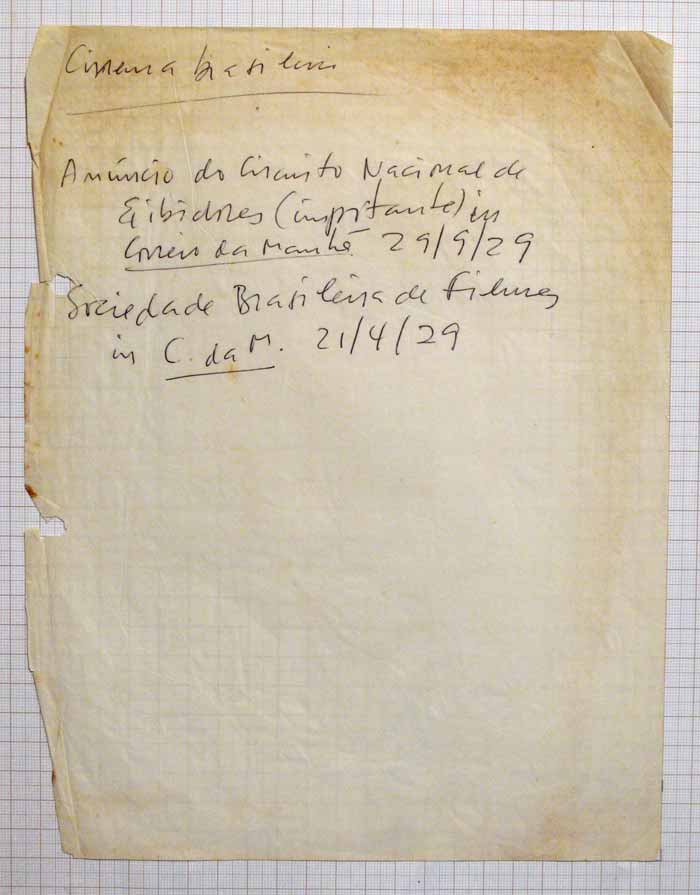 Cinema brasileiro
Anúncio do Circuito Nacional de
Exibidores (importante) in
Correio da Manhã 29/9/29
Sociedade Brasileira de Filmes
in C. da M. 21/4/29